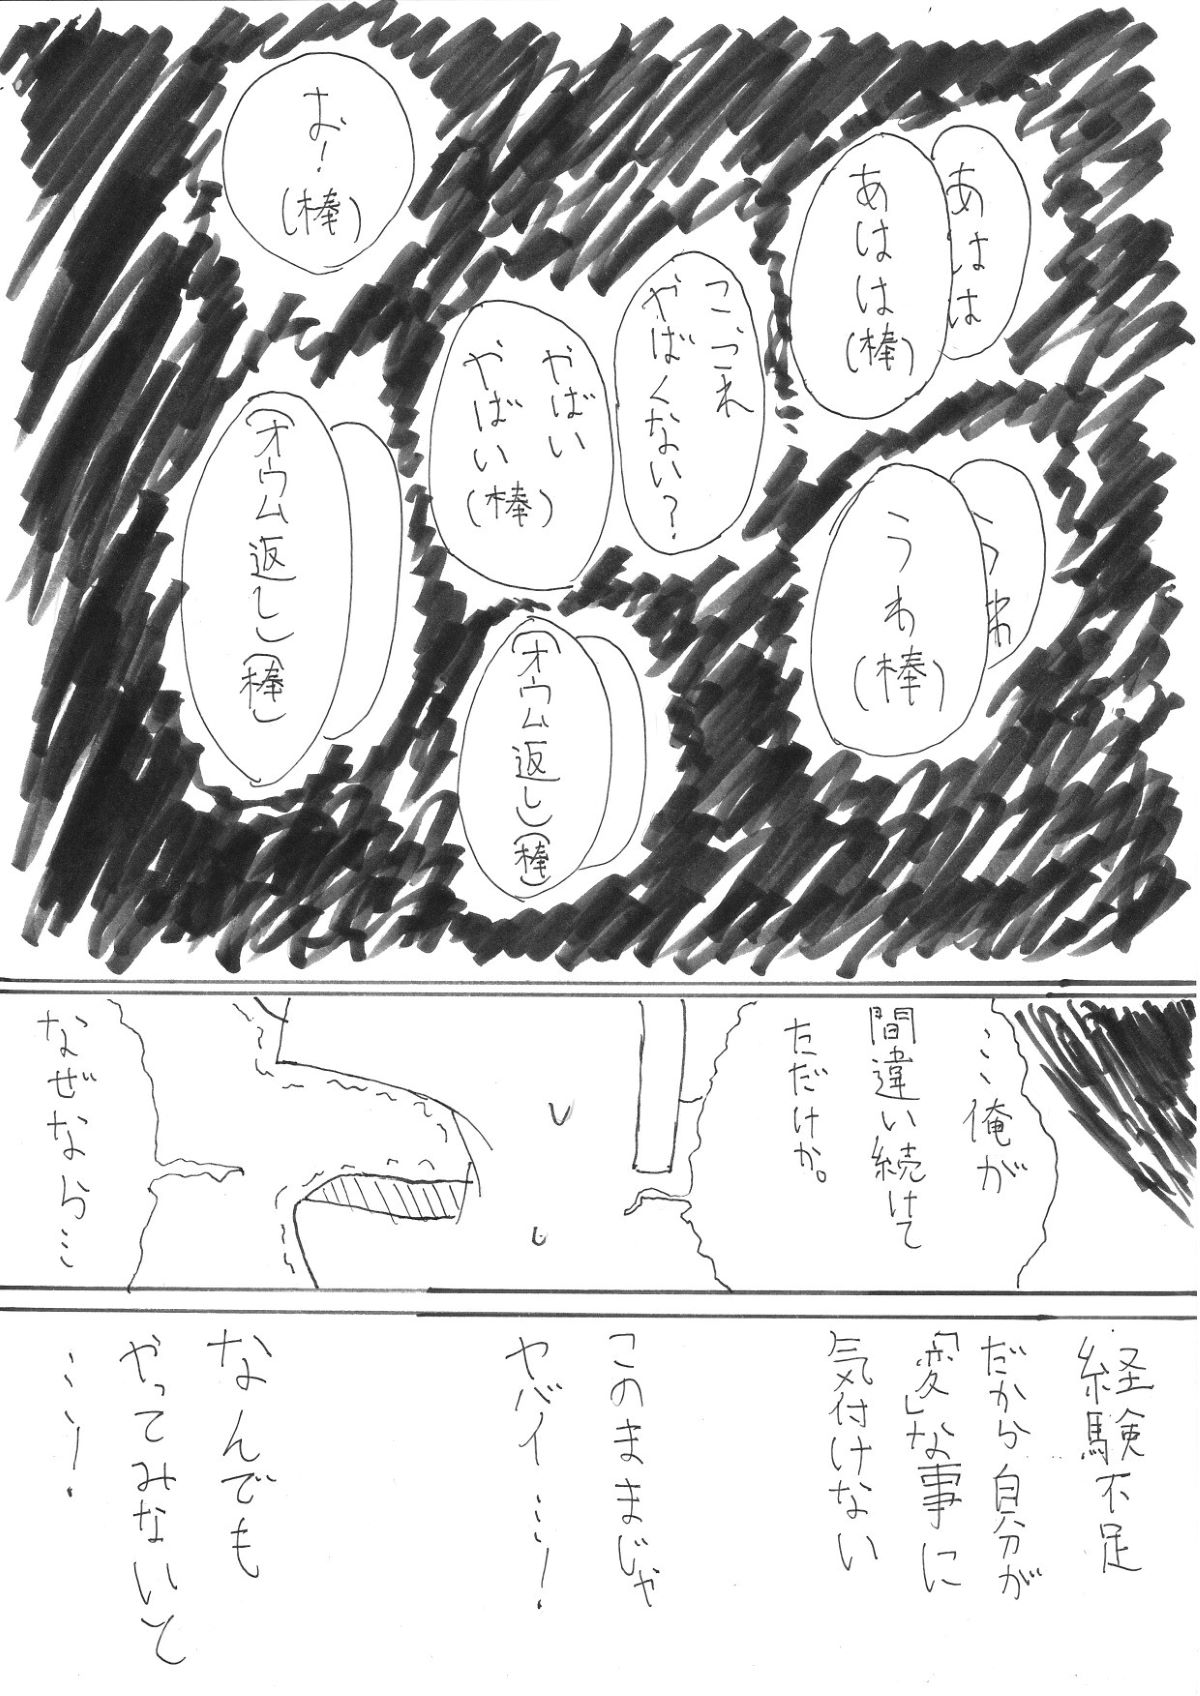 あはは
あはは(棒)
うわ
うわ(棒)
こっこれ
やばくない?
やばい
やばい(棒)
お!
(棒)
(オウム返し)(棒)
(オウム返し)(棒)
…俺が
間違い続けて
ただけか。
なぜなら…
経験不足
だから自分が
「変」な事に
気付けない
このままじゃ
ヤバイ…!
なんでも
やってみないと
…!